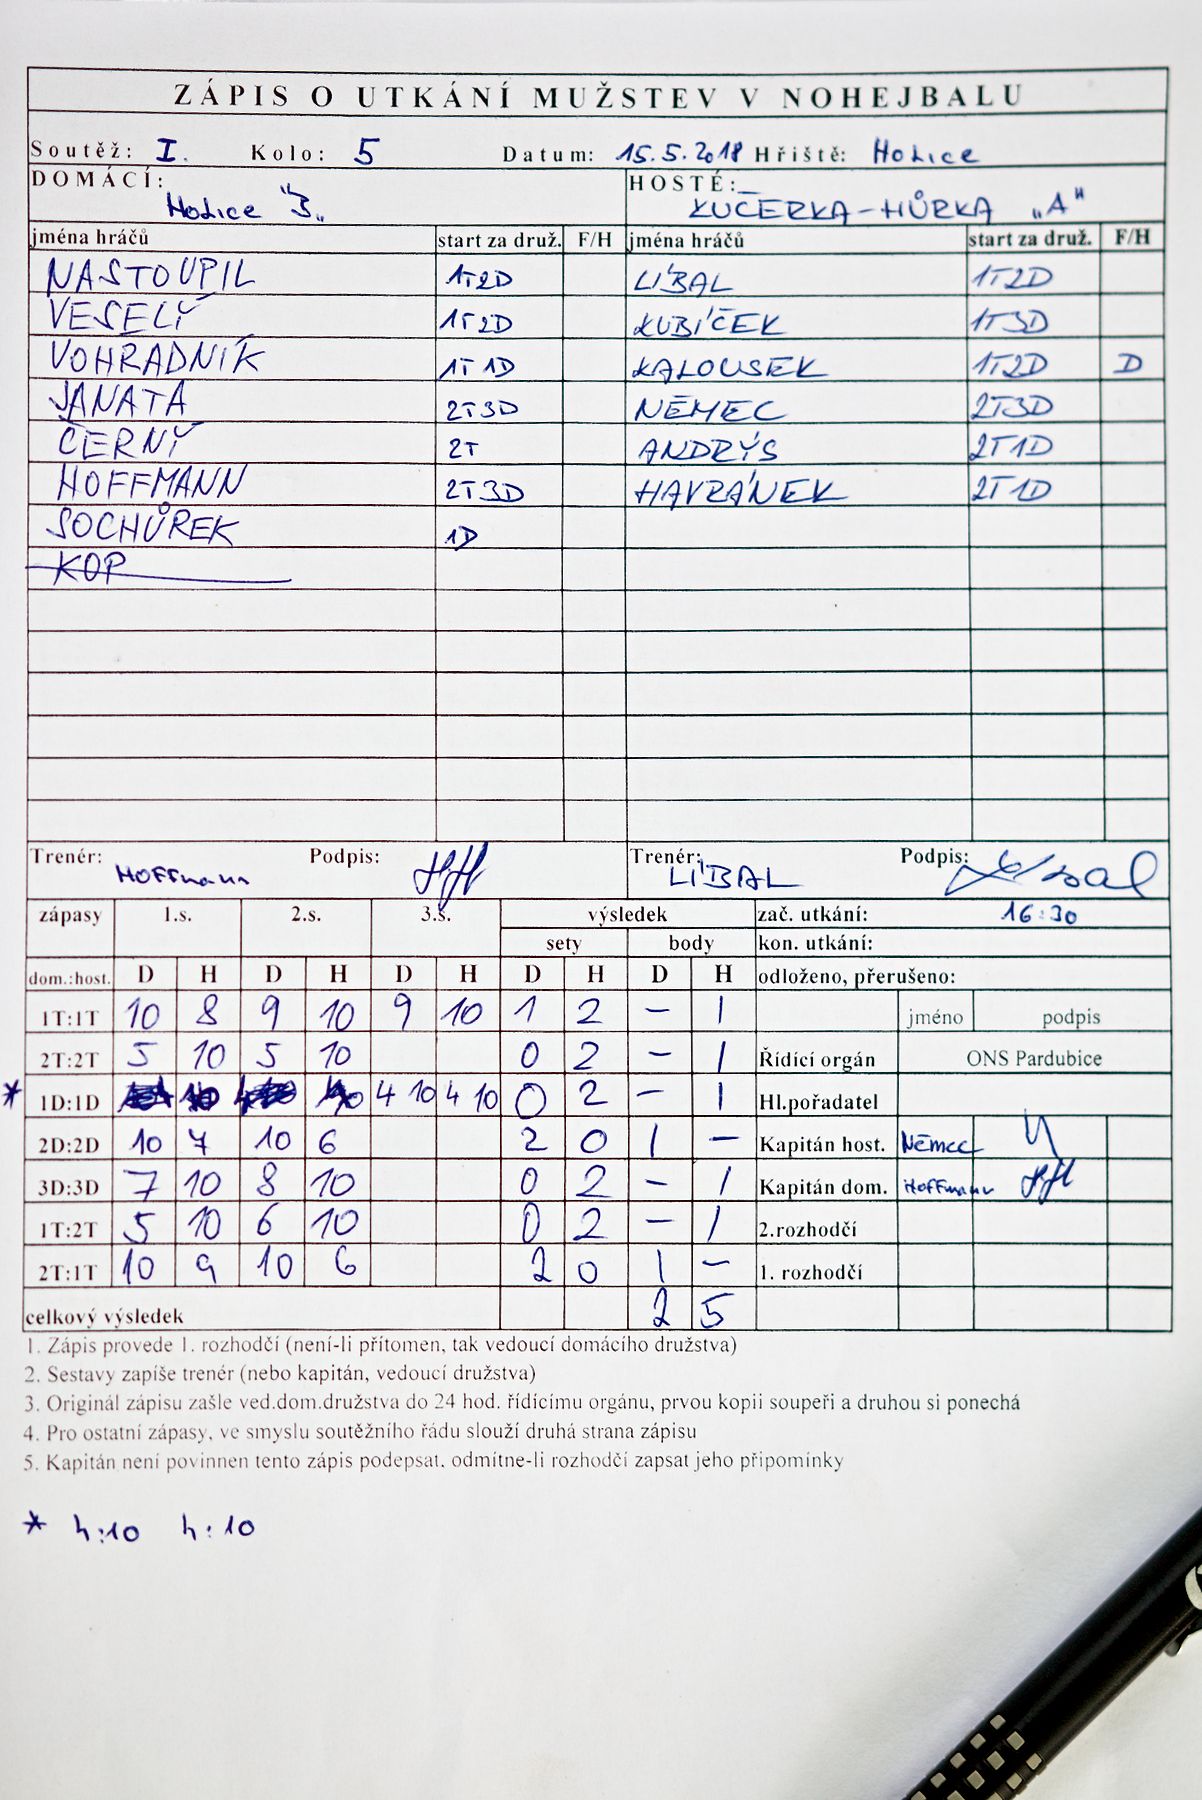 ZÁPIS O UTKÁNÍ MUŽSTEV V NOHEJBALU
Soutěž: I. Kolo: 5 Datum: 15.5.2018 Hřiště: Holice
DOMÁCÍ: Holice "B" HOSTÉ: KUČERKA-HŮRKA "A"
jména hráčů start za druž. F/H jména hráčů start za druž. F/H
NASTOUPIL 1T2D LÍBAL 1T2D
VESELÝ 1T2D KUBÍČEK 1T3D
VOHRADNÍK 1T1D KALOUSEK 1T2D D
JANATA 2T3D NĚMEC 2T3D
ČERNÝ 2T ANDRÝS 2T1D
HOFFMANN 2T3D HAVRÁNEK 2T1D
SOCHŮREK 1D
KOP
Trenér: Hoffmann Podpis: Trenér: LÍBAL Podpis:
zápasy 1.s. 2.s. 3.s. výsledek zač. utkání: 16:30
sety body kon. utkání:
dom.:host. D H D H D H D H D H odloženo, přerušeno:
1T:1T 10 8 9 10 9 10 1 2 – 1 jméno podpis
2T:2T 5 10 5 10 0 2 – 1 Řídící orgán ONS Pardubice
* 1D:1D 4 10 4 10 0 2 – 1 Hl.pořadatel
2D:2D 10 7 10 6 2 0 1 – Kapitán host. Němec
3D:3D 7 10 8 10 0 2 – 1 Kapitán dom. Hoffmann
1T:2T 5 10 6 10 0 2 – 1 2.rozhodčí
2T:1T 10 9 10 6 2 0 1 – 1. rozhodčí
celkový výsledek 2 5
1. Zápis provede 1. rozhodčí (není-li přítomen, tak vedoucí domácího družstva)
2. Sestavy zapíše trenér (nebo kapitán, vedoucí družstva)
3. Originál zápisu zašle ved.dom.družstva do 24 hod. řídícímu orgánu, prvou kopii soupeři a druhou si ponechá
4. Pro ostatní zápasy, ve smyslu soutěžního řádu slouží druhá strana zápisu
5. Kapitán není povinnen tento zápis podepsat, odmítne-li rozhodčí zapsat jeho připomínky
* 4:10 4:10